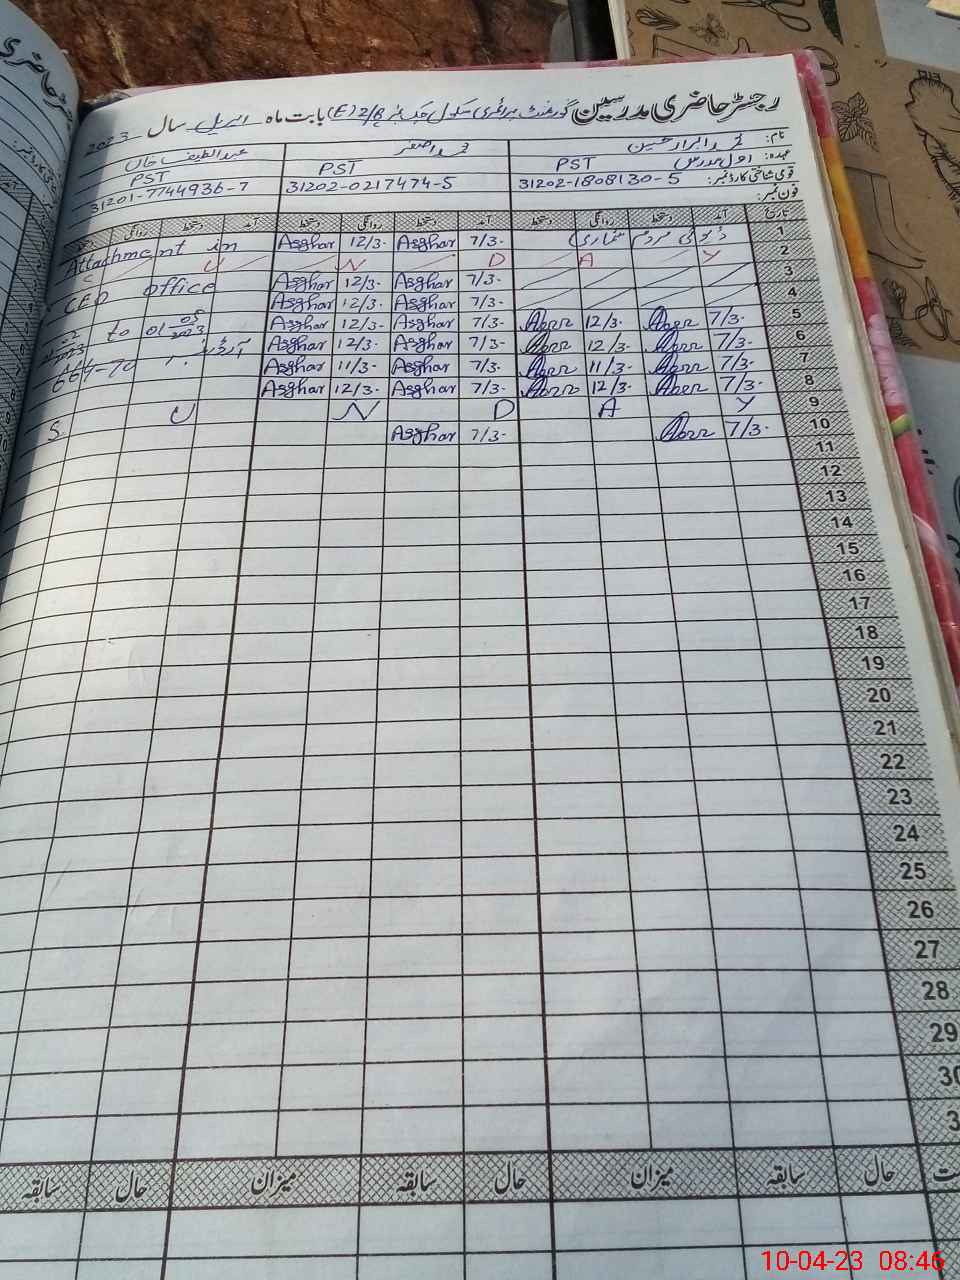 رجسٹر حاضری مدرسین گورنمنٹ پرائمری سکول چک نمبر 2/8(E) بابت ماہ اپریل سال 2023
نام: محمد ابرار حسین محمد اصغر عبدالطیف خاں
عہدہ: اول مدرس PST PST PST
قومی شناختی کارڈ نمبر: 31202-1808130-5 31202-0217474-5 31201-7744936-7
فون نمبر:
تاریخ آمد دستخط روانگی دستخط آمد دستخط روانگی دستخط آمد دستخط روانگی دستخط
1 ڈیوٹی مردم شماری 7/3- Asghar 12/3- Asghar Attachment in
2 Y A D N U
3 7/3- Asghar 12/3- Asghar CEO office
4 7/3- Asghar 12/3- Asghar
5 7/3- Abrr 12/3- Abrr 7/3- Asghar 12/3- Asghar to 01-05-2023
6 7/3- Abrr 12/3- Abrr 7/3- Asghar 12/3- Asghar آرڈر نمبر
7 7/3- Abrr 11/3- Abrr 7/3- Asghar 11/3- Asghar 664-70
8 7/3- Abrr 12/3- Abrr 7/3- Asghar 12/3- Asghar
9 Y A D N U S
10 7/3- Abrr 7/3- Asghar
11
12
13
14
15
16
17
18
19
20
21
22
23
24
25
26
27
28
29
30
3
حال سابقہ میزان حال سابقہ میزان حال سابقہ
10-04-23 08:46